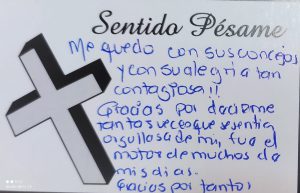 Sentido Pésame
Me quedo con sus concejos
y con su alegria tan
contagiosa!!
Gracias por decirme
tantas veces que se sentia
orgullosa de mi, fue el
motor de muchos de
mis dias.
Gracias por tanto!